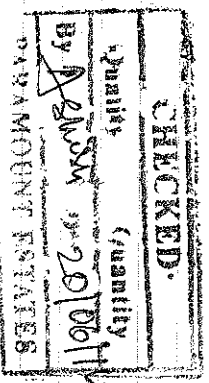 CHECKED
Quality Quantity
By on 20/06/11
PARAMOUNT ESTATES